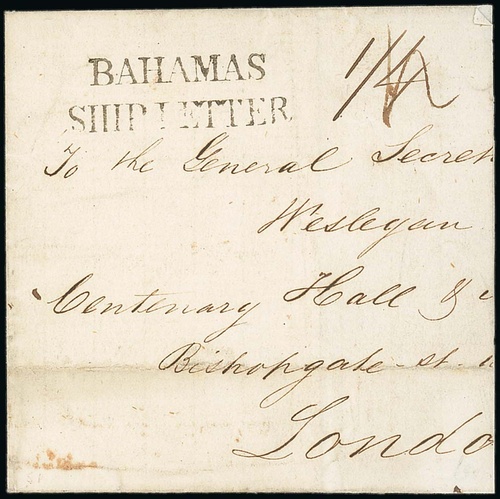 BAHAMAS
SHIP LETTER
1/4
To the General Secre
Wesleyan
Centenary Hall &
Bishopgate st
Londo